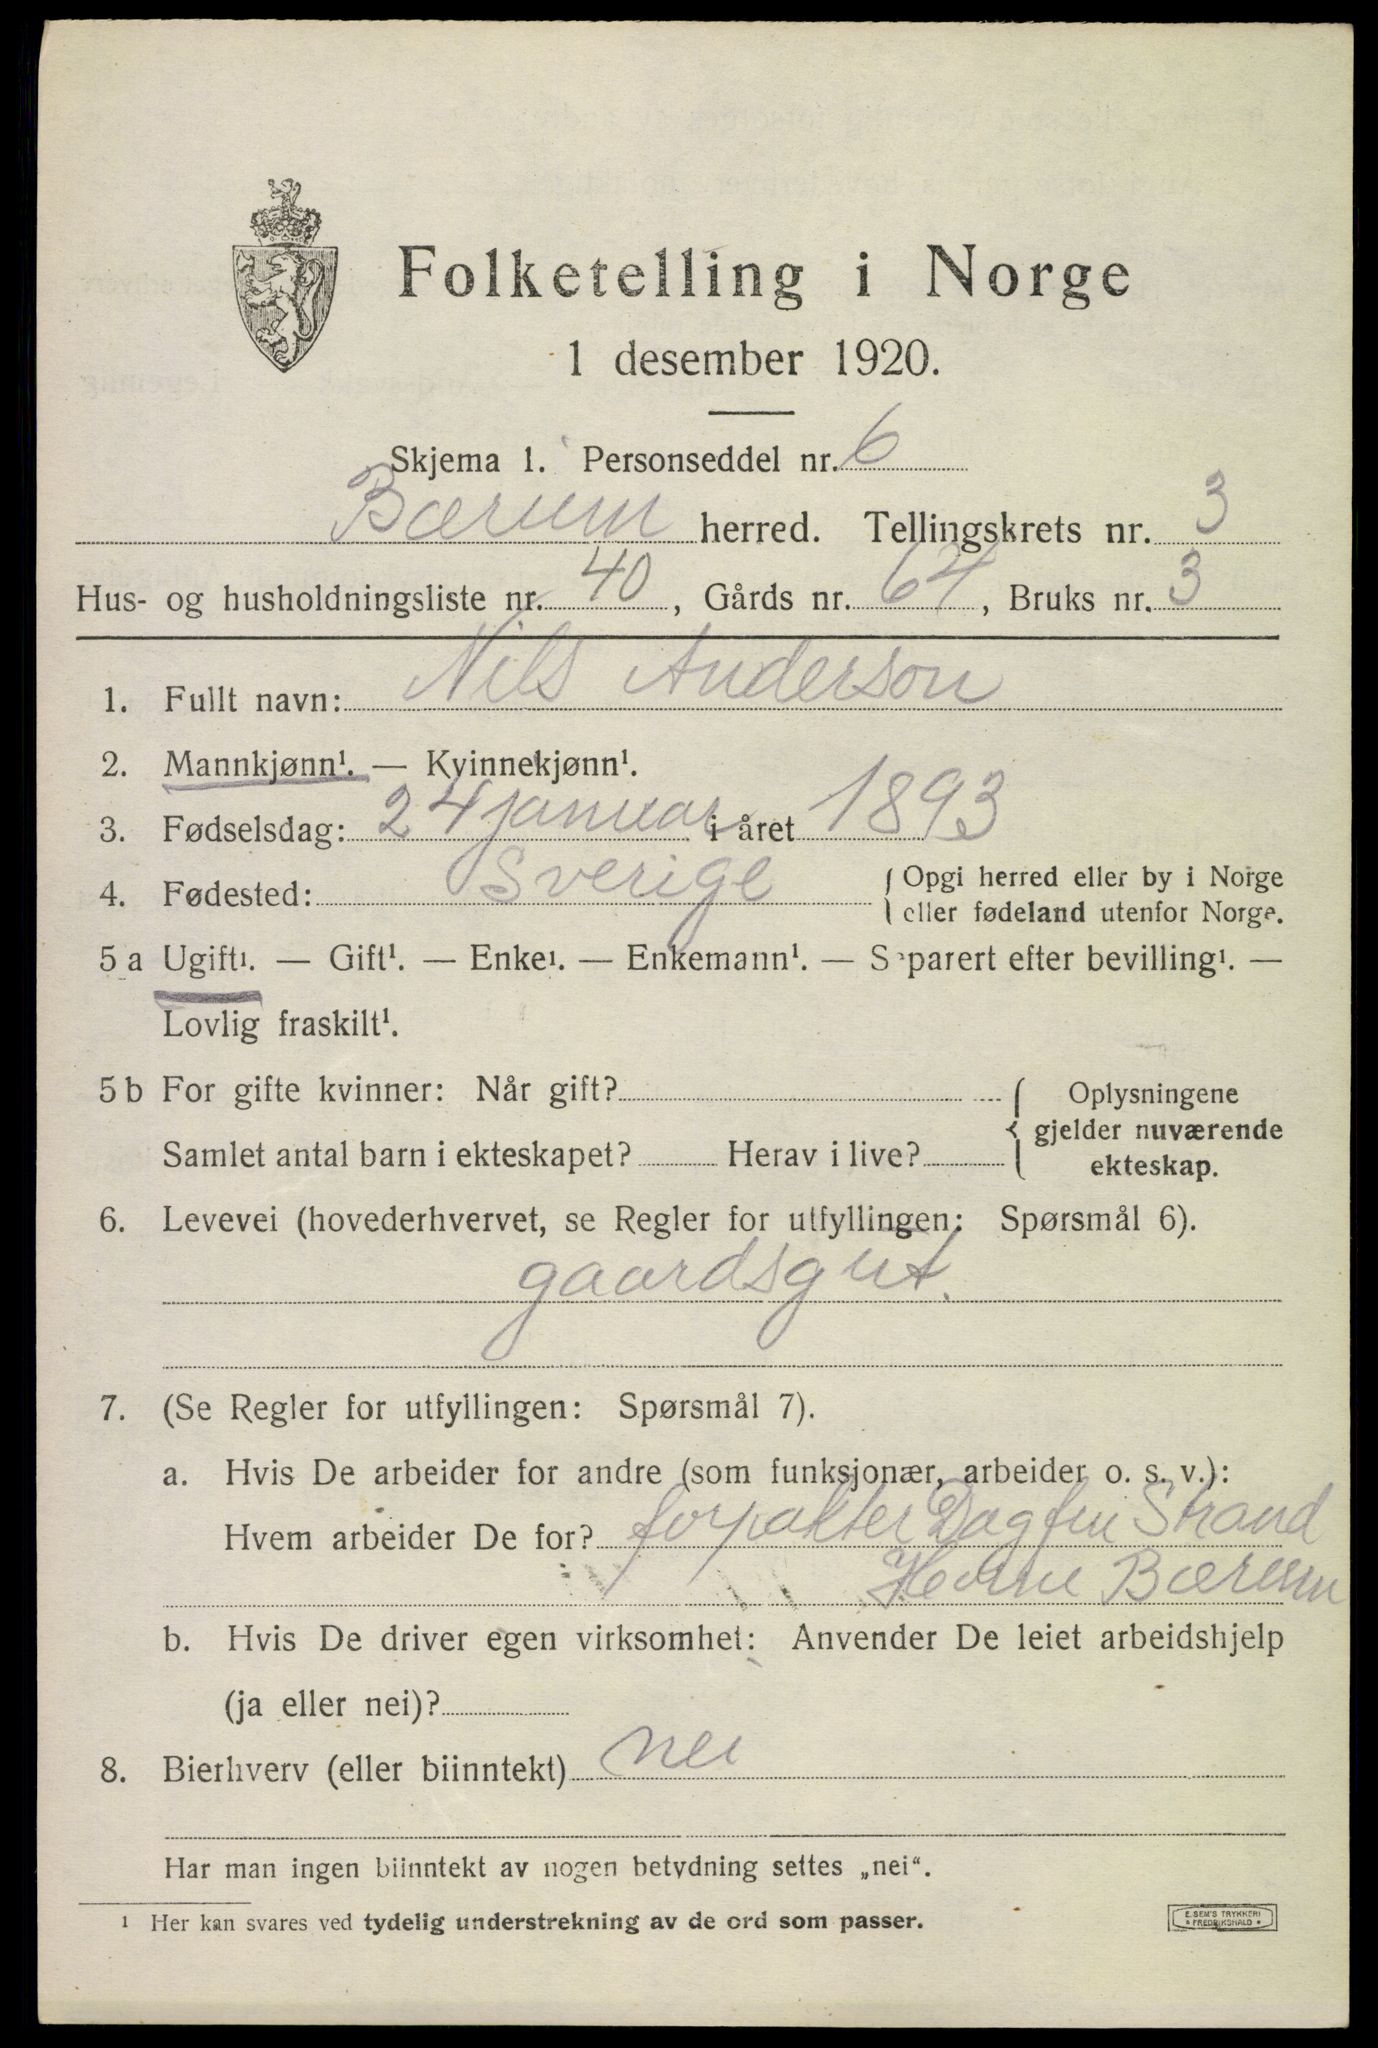 Folketelling i Norge
1 desember 1920.
Skjema 1. Personseddel nr. 6
Bærum herred. Tellingskrets nr. 3
Hus- og husholdningsliste nr. 40, Gårds nr. 64, Bruks nr. 3
1. Fullt navn: Nils Anderson
2. Mannkjønn¹. — Kvinnekjønn¹.
3. Fødselsdag: 24 januar i året 1893
4. Fødested: Sverige { Opgi herred eller by i Norge
eller fødeland utenfor Norge.
5 a Ugift¹. — Gift¹. — Enke¹. — Enkemann¹. — Separert efter bevilling¹. —
Lovlig fraskilt¹.
5 b For gifte kvinner: Når gift? { Oplysningene
gjelder nuværende
Samlet antal barn i ekteskapet? Herav i live? ekteskap.
6. Levevei (hovederhvervet, se Regler for utfyllingen: Spørsmål 6).
gaardsgut.
7. (Se Regler for utfyllingen: Spørsmål 7).
a. Hvis De arbeider for andre (som funksjonær, arbeider o. s. v.):
Hvem arbeider De for? forpakter Dagfin Strand
Bærum
b. Hvis De driver egen virksomhet: Anvender De leiet arbeidshjelp
(ja eller nei)?
8. Bierhverv (eller biinntekt) nei
Har man ingen biinntekt av nogen betydning settes „nei“.
¹ Her kan svares ved tydelig understrekning av de ord som passer.
E. SEM'S TRYKKERI
* FREDRIKSHALD *